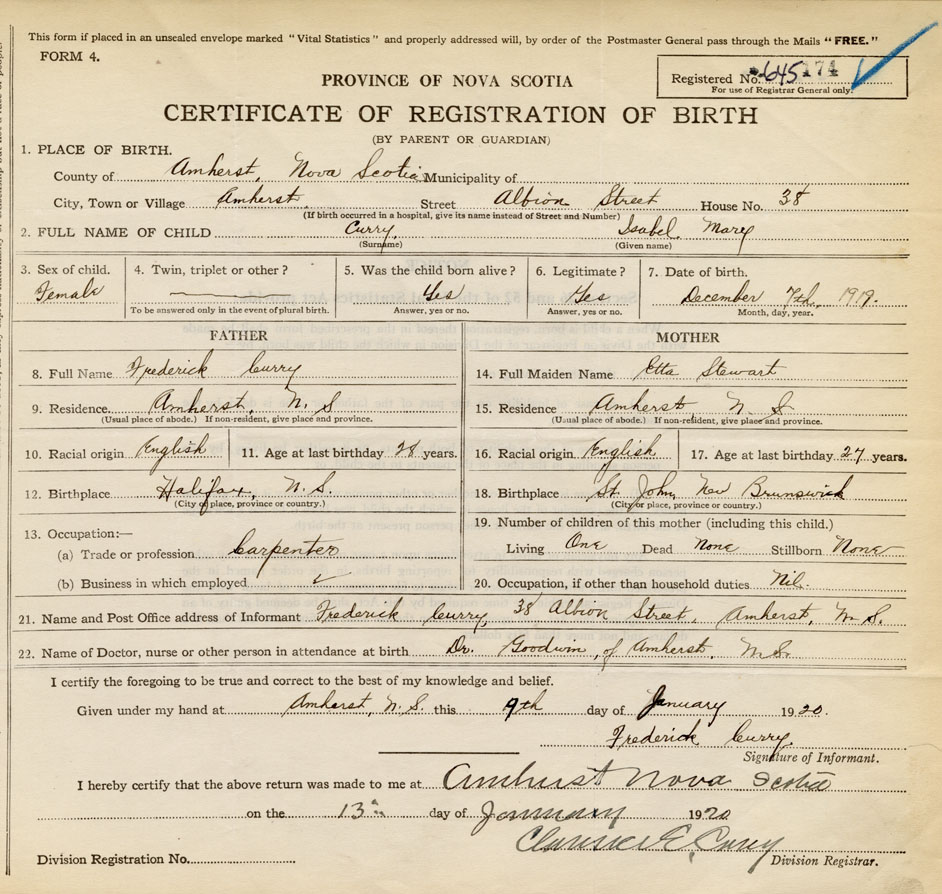 This form if placed in an unsealed envelope marked "Vital Statistics" and properly addressed will, by order of the Postmaster General pass through the Mails "FREE."
FORM 4.
Registered No. 645 174
For use of Registrar General only.
PROVINCE OF NOVA SCOTIA
CERTIFICATE OF REGISTRATION OF BIRTH
(BY PARENT OR GUARDIAN)
1. PLACE OF BIRTH.
County of Amherst, Nova Scotia Municipality of
City, Town or Village Amherst Street Albion Street House No. 38
(If birth occurred in a hospital, give its name instead of Street and Number)
2. FULL NAME OF CHILD Curry, Isabel Mary
(Surname) (Given name)
3. Sex of child. 4. Twin, triplet or other? 5. Was the child born alive? 6. Legitimate? 7. Date of birth.
Female Yes Yes December 7th, 1919.
To be answered only in the event of plural birth. Answer, yes or no. Answer, yes or no. Month, day, year.
FATHER MOTHER
8. Full Name Frederick Curry 14. Full Maiden Name Etta Stewart
9. Residence. Amherst, N. S 15. Residence Amherst, N. S
(Usual place of abode.) If non-resident, give place and province. (Usual place of abode.) If non-resident, give place and province.
10. Racial origin English 11. Age at last birthday 28 years. 16. Racial origin English 17. Age at last birthday 27 years.
12. Birthplace Halifax, N. S. 18. Birthplace St. John, New Brunswick
(City or place, province or country.) (City or place, province or country.)
13. Occupation:— 19. Number of children of this mother (including this child.)
(a) Trade or profession Carpenter Living One Dead None Stillborn None
(b) Business in which employed 20. Occupation, if other than household duties Nil.
21. Name and Post Office address of Informant Frederick Curry, 38 Albion Street, Amherst, N. S.
22. Name of Doctor, nurse or other person in attendance at birth Dr. Goodwin, of Amherst, N.S.
I certify the foregoing to be true and correct to the best of my knowledge and belief.
Given under my hand at Amherst, N.S. this 9th day of January 1920.
Frederick Curry.
Signature of Informant.
I hereby certify that the above return was made to me at Amherst Nova Scotia
on the 13th day of January 1920
E.
Division Registration No. Division Registrar.